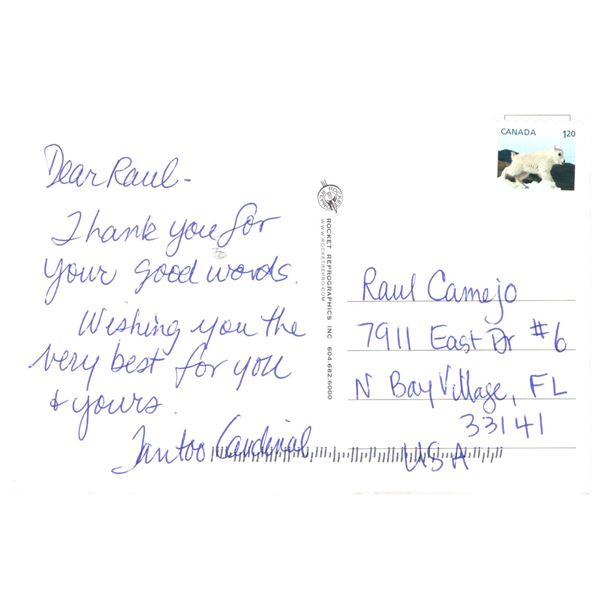 CANADA 1.20
Dear Raul -
Thank you for
your good words.
Wishing you the
very best for you
& yours.
Tantoo Cardinal
ROCKET REPROGRAPHICS INC 604.682.6000
WWW.ROCKETREPRO.COM
Raul Camejo
7911 East Dr #6
N Bay Village, FL
33141
USA